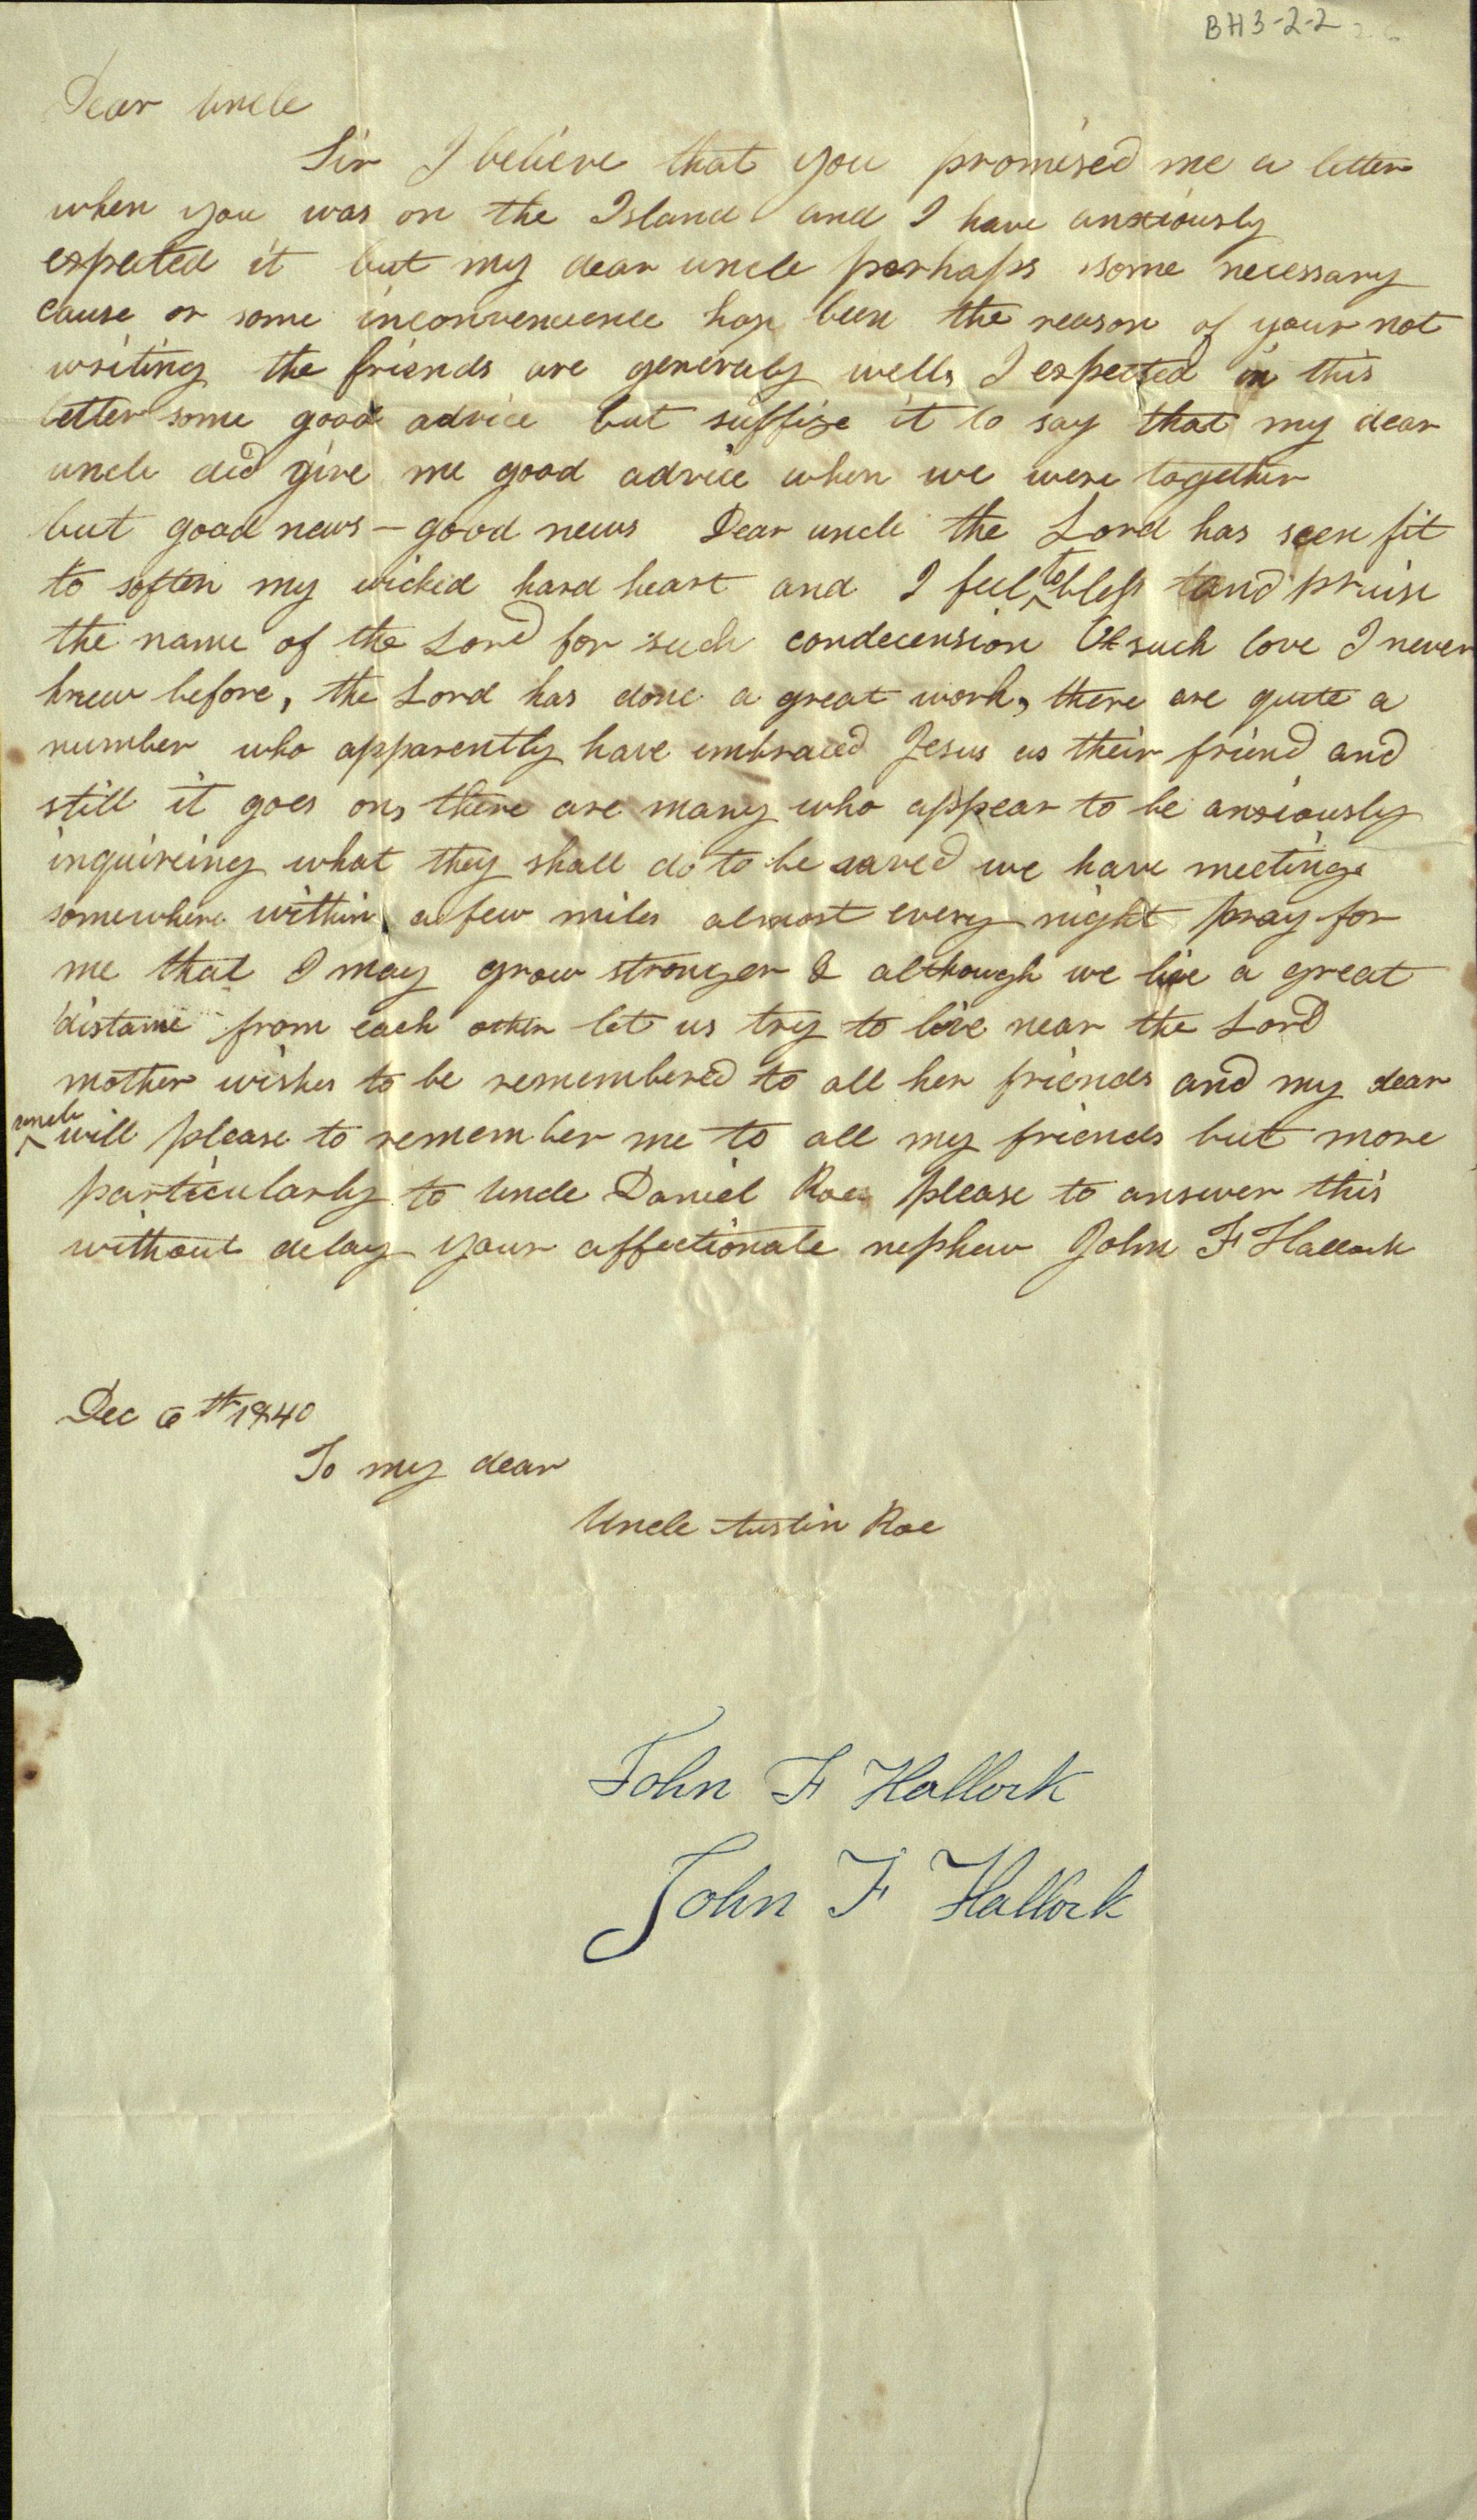 BH3-2-2
Dear Uncle
Sir I believe that you promised me a letter
when you was on the Island and I have anxiously
expected it but my dear uncle perhaps some necessary
cause or some inconvenience has been the reason of your not
writing the friends are generaly well, I expected in this
letter some good advice but suffize it to say that my dear
uncle did give me good advice when we were together
but good news – good news Dear uncle the Lord has seen fit
to soften my wicked hard heart and I feel ^to bless and praise
the name of the Lord for such condecension Oh such love I never
knew before, the Lord has done a great work, there are quite a
number who apparently have embraced Jesus as their friend and
still it goes on, there are many who appear to be anxiously
inquireing what they shall do to be saved we have meetings
somewhere within a few miles almost every night pray for
me that I may grow stronger & although we live a great
distance from each other let us try to live near the Lord
mother wishes to be remembered to all her friends and my dear
^uncle will please to remember me to all my friends but more
particularly to Uncle Daniel Roe please to answer this
without delay your affectionate nephew John F Hallock
Dec 6th 1840
To my dear
Uncle Austin Roe
John F Hallock
John F Hallock